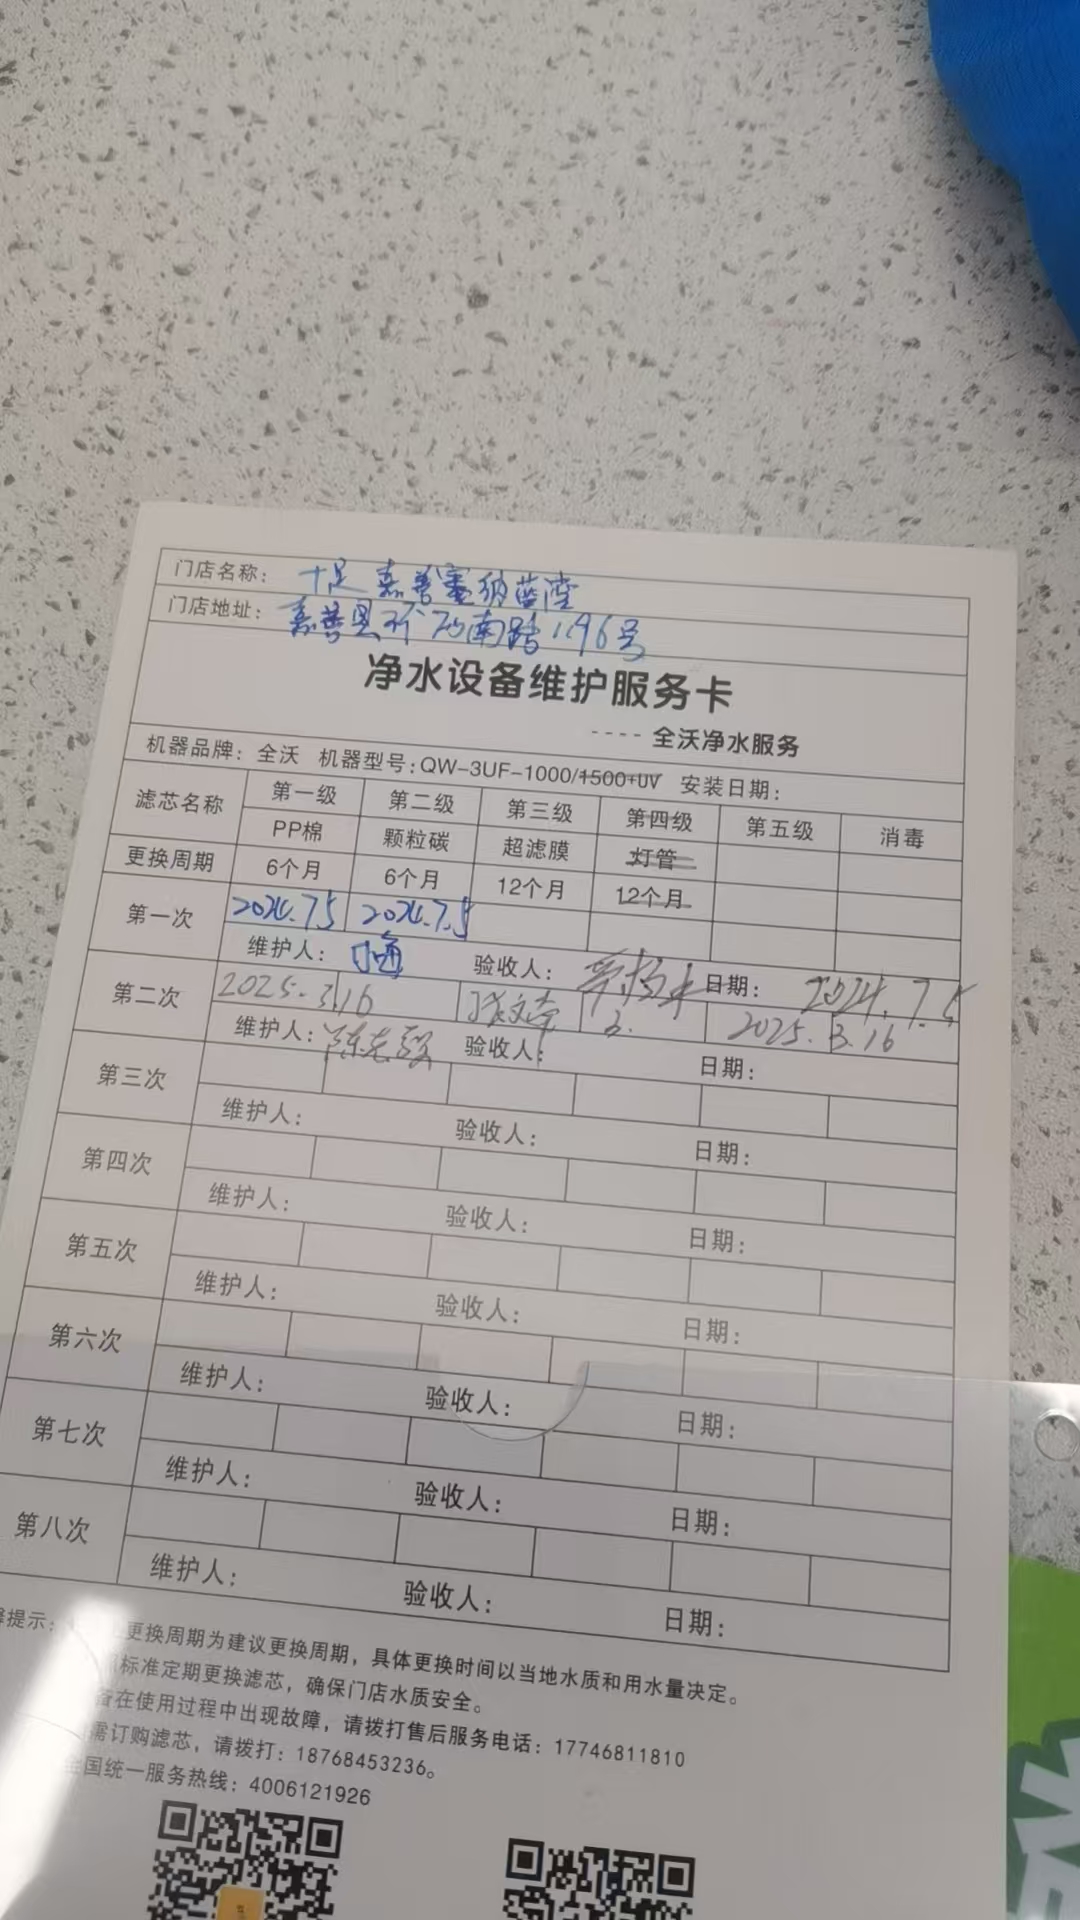 门店名称： 十足嘉善塞纳蓝湾
门店地址： 嘉善县 南路196号
净水设备维护服务卡
---- 全沃净水服务
机器品牌：全沃 机器型号：QW-3UF-1000/1500+UV 安装日期：
滤芯名称 第一级 第二级 第三级 第四级 第五级 消毒
PP棉 颗粒碳 超滤膜 灯管
更换周期 6个月 6个月 12个月 12个月
第一次 2024.7.5 2024.7.5
维护人： 验收人： 日期： 2024.7.5
第二次 2025.3.16 2025.3.16
维护人： 验收人： 日期：
第三次
维护人： 验收人： 日期：
第四次
维护人： 验收人： 日期：
第五次
维护人： 验收人： 日期：
第六次
维护人： 验收人： 日期：
第七次
维护人： 验收人： 日期：
第八次
维护人： 验收人： 日期：
提示： 更换周期为建议更换周期，具体更换时间以当地水质和用水量决定。
标准定期更换滤芯，确保门店水质安全。
备在使用过程中出现故障，请拨打售后服务电话：17746811810
需订购滤芯，请拨打：18768453236。
全国统一服务热线：4006121926